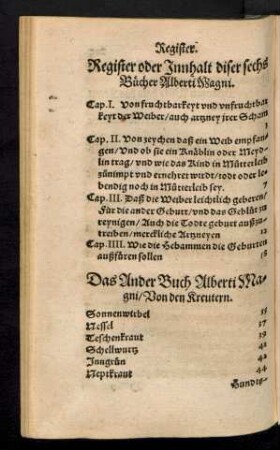 Register.
Register oder Jnnhalt diser sechs
Bücher Alberti Magni.
Cap. I. Von fruchtbarkeyt vnd vnfruchtbar
keyt der Weiber / auch artzney jrer Scham
Cap. II. Von zeychen daß ein Weib empfan
gen / Vnd ob sie ein Knäblin oder Meyd-
lin trag / vnd wie das Kind in Mütterleib
zünimpt vnd ernehrt wirdt / todt oder le-
bendig noch in Mütterleib sey. 7
Cap. III. Daß die Weiber leichtlich geberen /
Für die ander Geburt / vnd das Geblüt zu
reynigen / Auch die Todte geburt außzu-
treiben / merckliche Artzneyen 12
Cap. IIII. Wie die Hebammen die Geburten
außfüren sollen 18
Das Ander Buch Alberti Ma-
gni / Von den Kreutern.
Sonnenwirbel
Nessel
Teschenkraut
Schellwurtz
Jungrün
Neptkraut 44
Hunds-